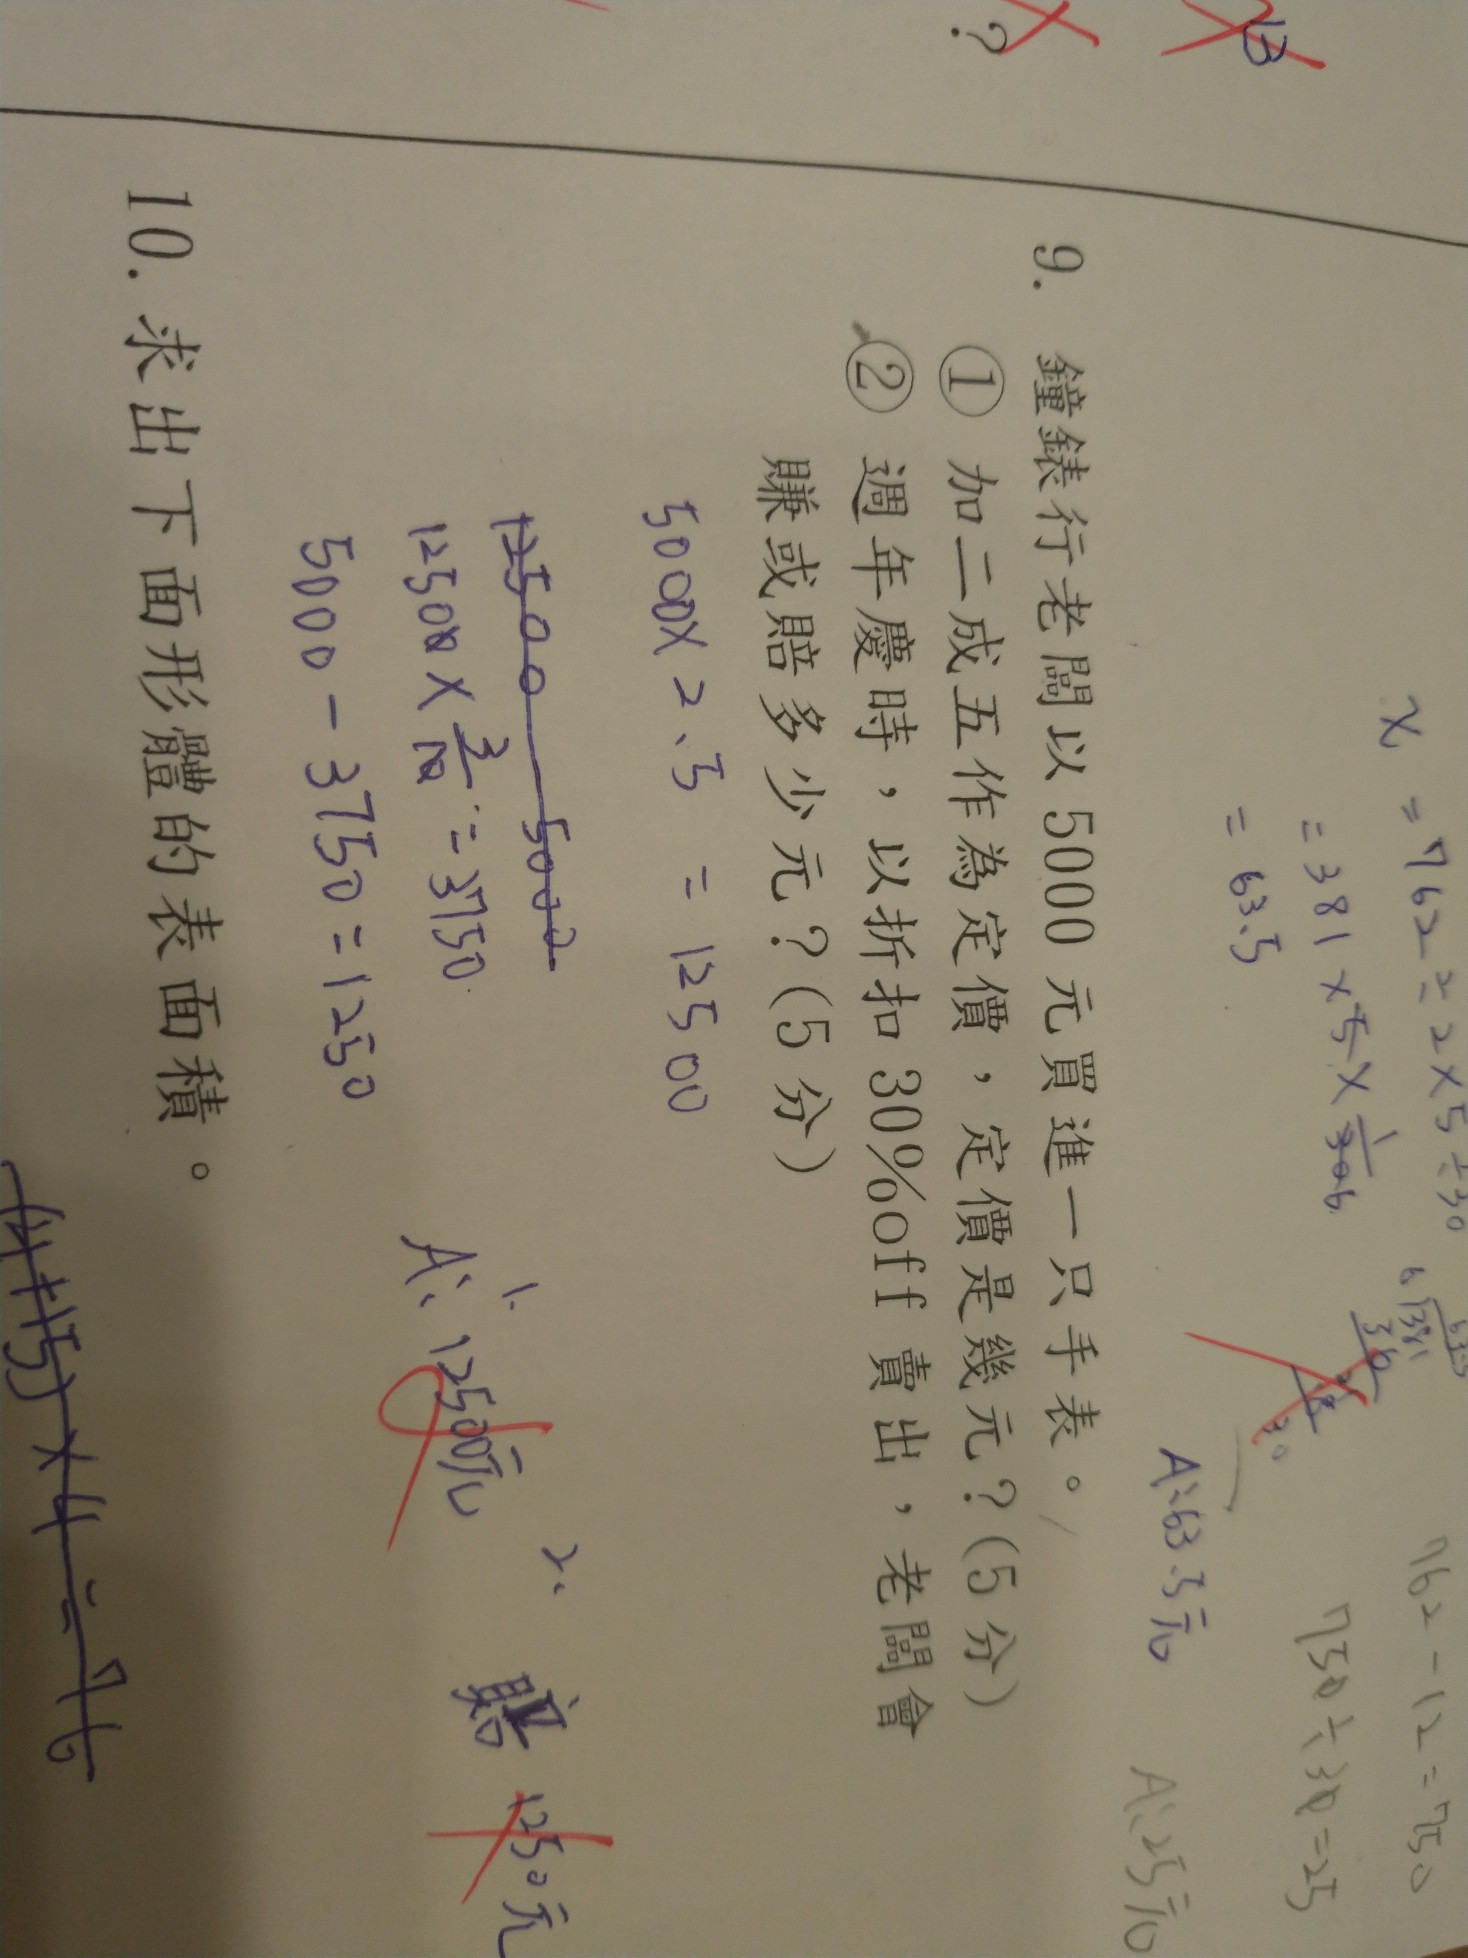 13
?
x = 762 ÷ 2 × 5 ÷ 30
= 381 × 5 ×
= 63.5
762 - 12 = 750
750 ÷ 30 = 25
A:63.5元
A:25元
9. 鐘錶行老闆以 5000 元買進一只手表。
① 加二成五作為定價，定價是幾元？(5 分)
② 週年慶時，以折扣 30%off 賣出，老闆會
賺或賠多少元？(5 分)
5000× 2.5 = 12500
12500 5000
12500 × 3/10 = 3750
5000 - 3750 = 1250
1.
A: 12500元
2.
賠 1250元
10. 求出下面形體的表面積。
(4+15) × 4 = 76